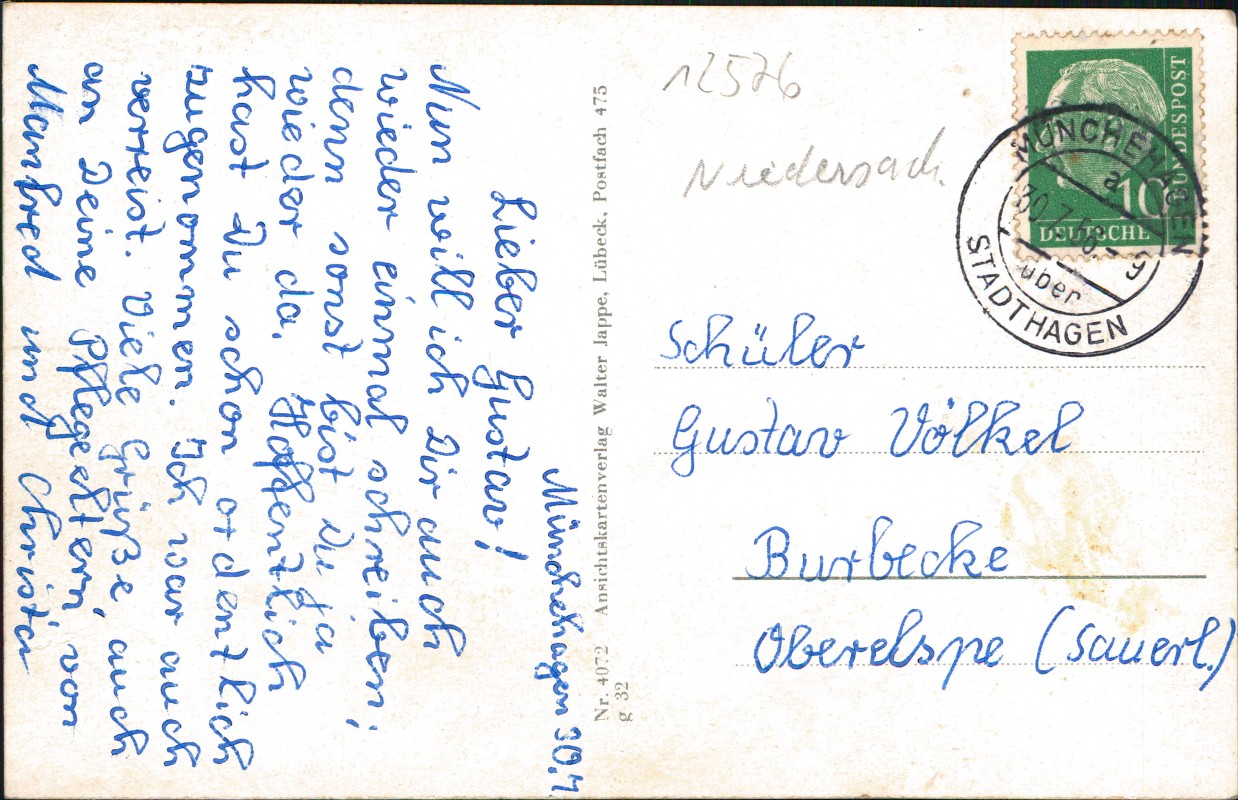 Münchehagen 30.7.
Lieber Gustav!
Nun will ich Dir auch
wieder einmal schreiben,
denn sonst bist Du ja
wieder da. Hoffentlich
hast Du schon ordentlich
zugenommen. Ich war auch
verreist. Viele Grüße auch
an Deine Pflegeeltern, von
Manfred und Christa
Nr. 4072 Ansichtskartenverlag Walter Jappe, Lübeck, Postfach 475
g 32
12576
Niedersach.
DEUTSCHE BUNDESPOST
10
MÜNCHEHAGEN
a
30.7.56-9
über
STADTHAGEN
Schüler
Gustav Völkel
Burbecke
Oberelspe (Sauerl.)